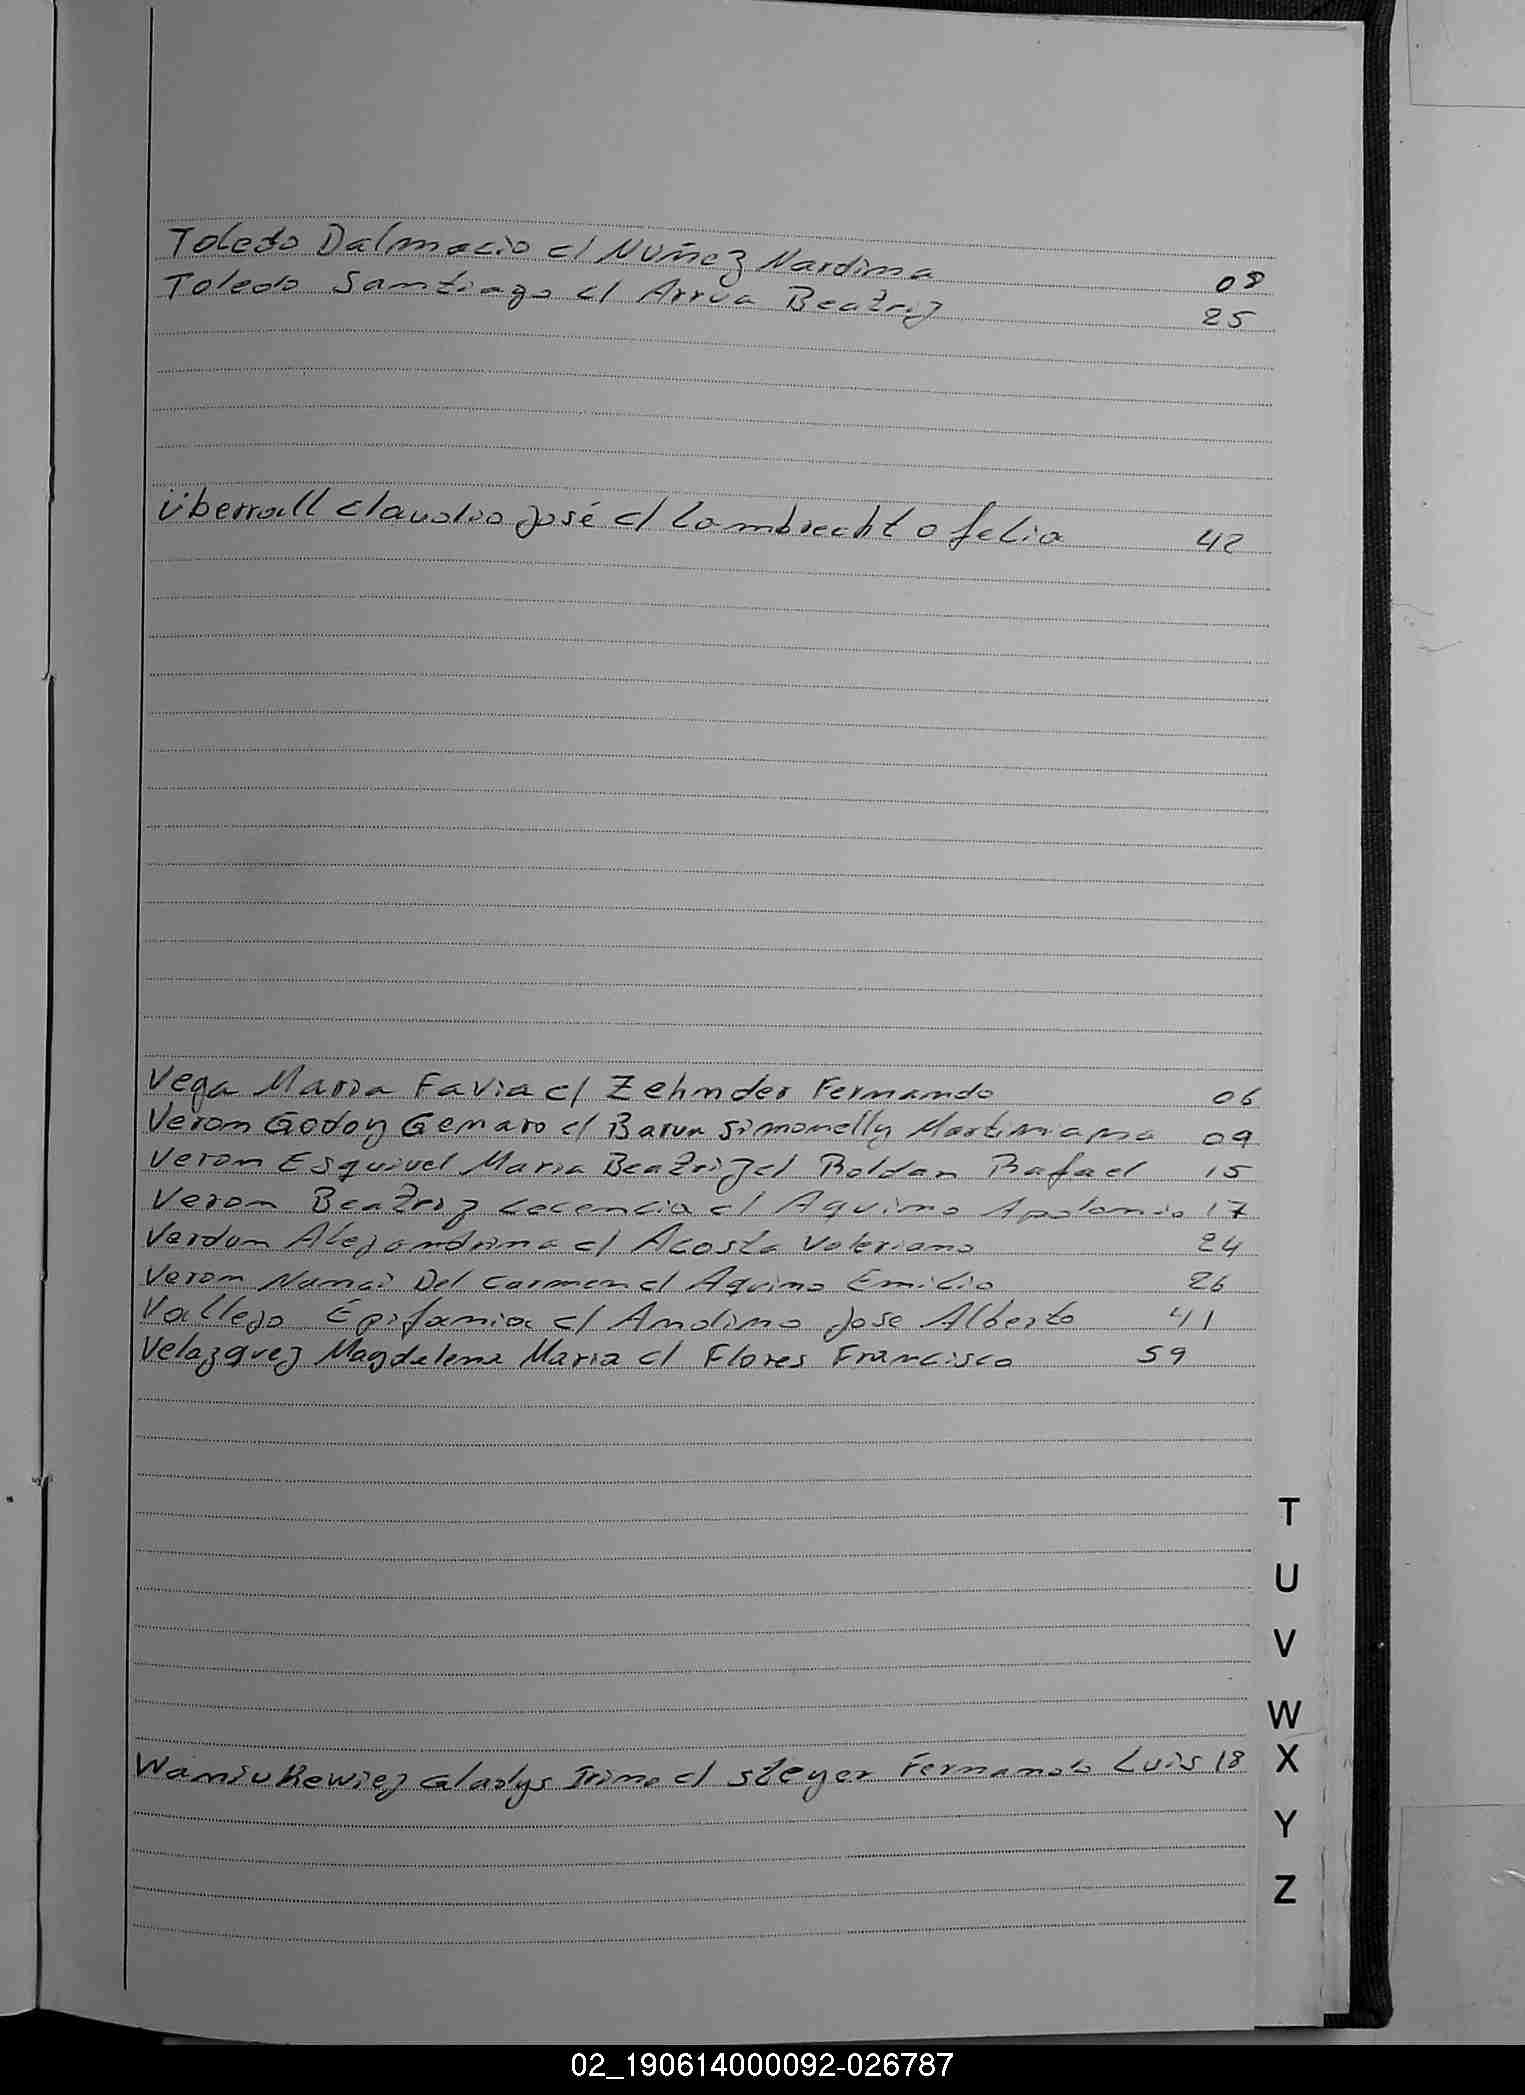 Toledo Dalmacio c/ Nuñez Nardina 08
Toledo Santiago c/ Arrua Beatriz 25
Überrall Claudio José c/ Lambrecht Ofelia 42
Vega Maria Favia c/ Zehnder Fernando 06
Veron Godoy Genaro c/ Barua Simonelly Martiniana 09
Veron Esquivel Maria Beatriz c/ Roldan Rafael 15
Veron Beatriz c/ Aquino Apolonio 17
Verdun Alejandrina c/ Acosta Valeriano 24
Veron Nanci Del Carmen c/ Aquino Emilio 26
Vallejo Epifania c/ Andino Jose Alberto 41
Velazquez Magdalena Maria c/ Flores Francisco 59
Waniukewiez Gladys Irina c/ Steyer Fernando Luis 18
T
U
V
W
X
Y
Z
02_190614000092-026787